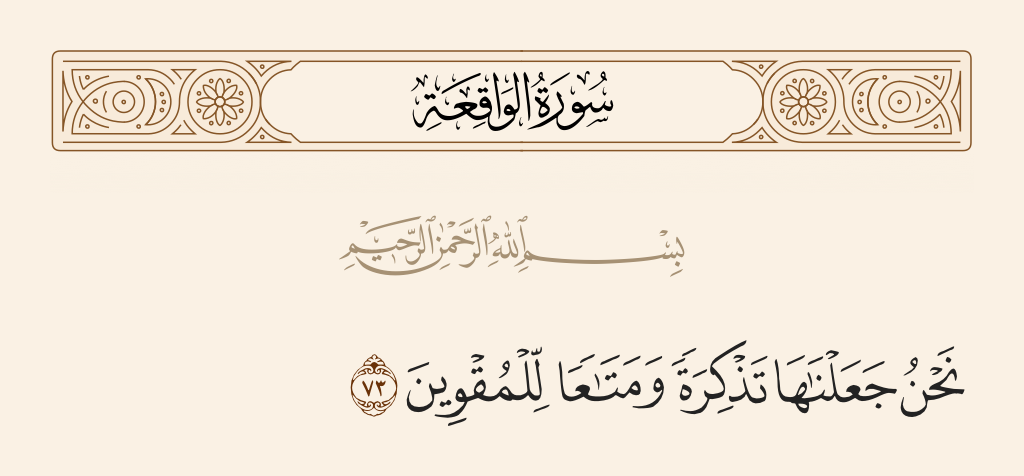 سُورَةُ الوَاقِعَةِ
بِسْمِ ٱللَّهِ ٱلرَّحْمَٰنِ ٱلرَّحِيمِ
نَحْنُ جَعَلْنَٰهَا تَذْكِرَةً وَمَتَٰعًا لِّلْمُقْوِينَ ٧٣